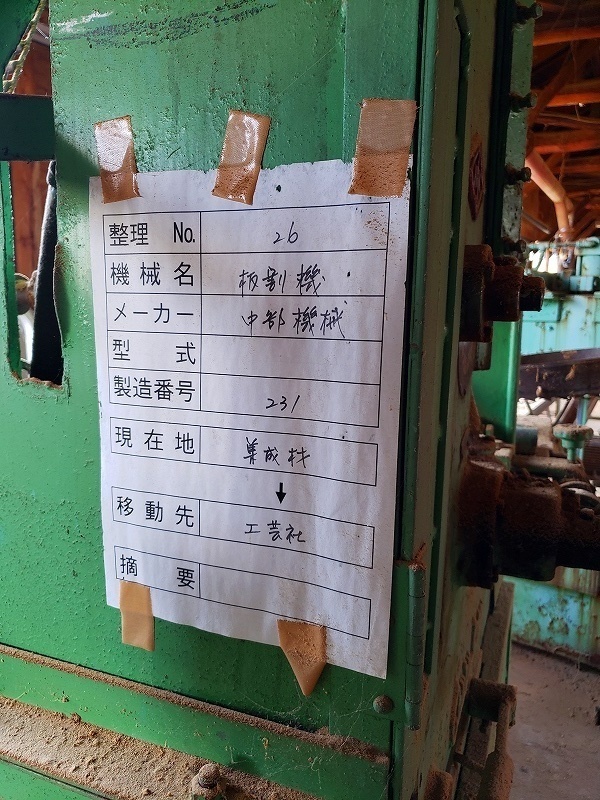 整理 No. 26
機械名 板割機
メーカー 中部機械
型式
製造番号 231
現在地 集成材
↓
移動先 工芸社
摘要